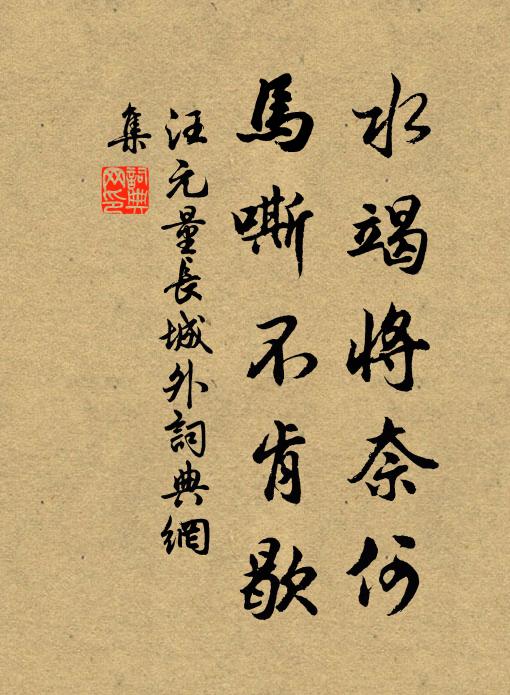 水竭將奈何
馬嘶不肯歇
汪元量長城外詞典網
集
詞典
网印